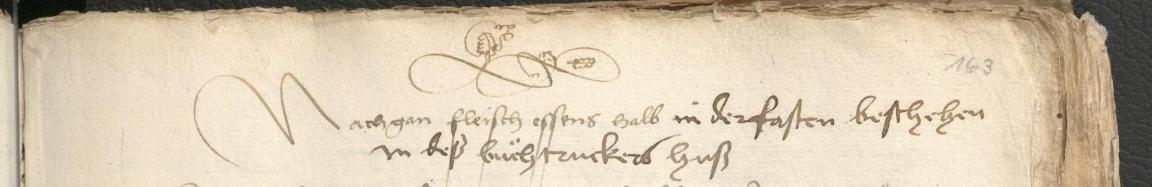 163
Nachgan fleisch essens halb in der fasten beschehen
in deß buͦchtruckers huß